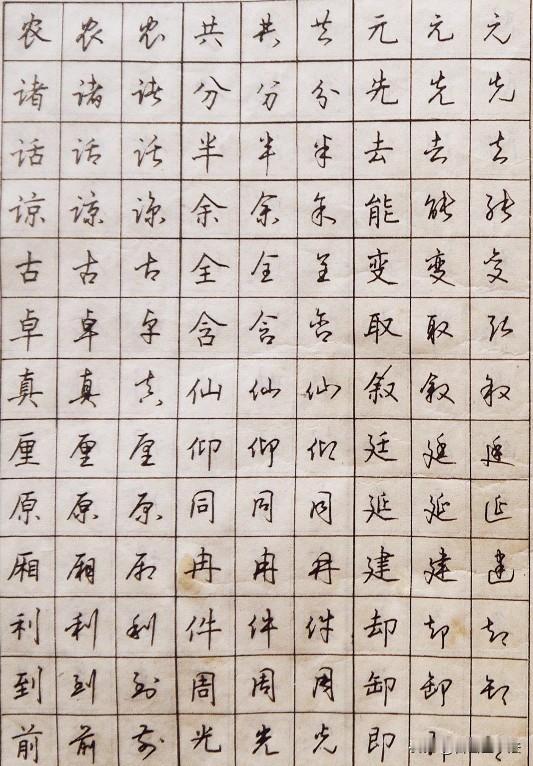 农 农 农 共 共 共 元 元 元
诸 诸 诸 分 分 分 先 先 先
话 话 话 半 半 半 去 去 去
谅 谅 谅 余 余 余 能 能 能
古 古 古 全 全 全 变 变 变
卓 卓 卓 含 含 含 取 取 取
真 真 真 仙 仙 仙 叙 叙 叙
厘 厘 厘 仰 仰 仰 廷 廷 廷
原 原 原 同 同 同 延 延 延
厢 厢 厢 冉 冉 冉 建 建 建
利 利 利 件 件 件 却 却 却
到 到 到 周 周 周 卸 卸 卸
前 前 前 光 光 光 即